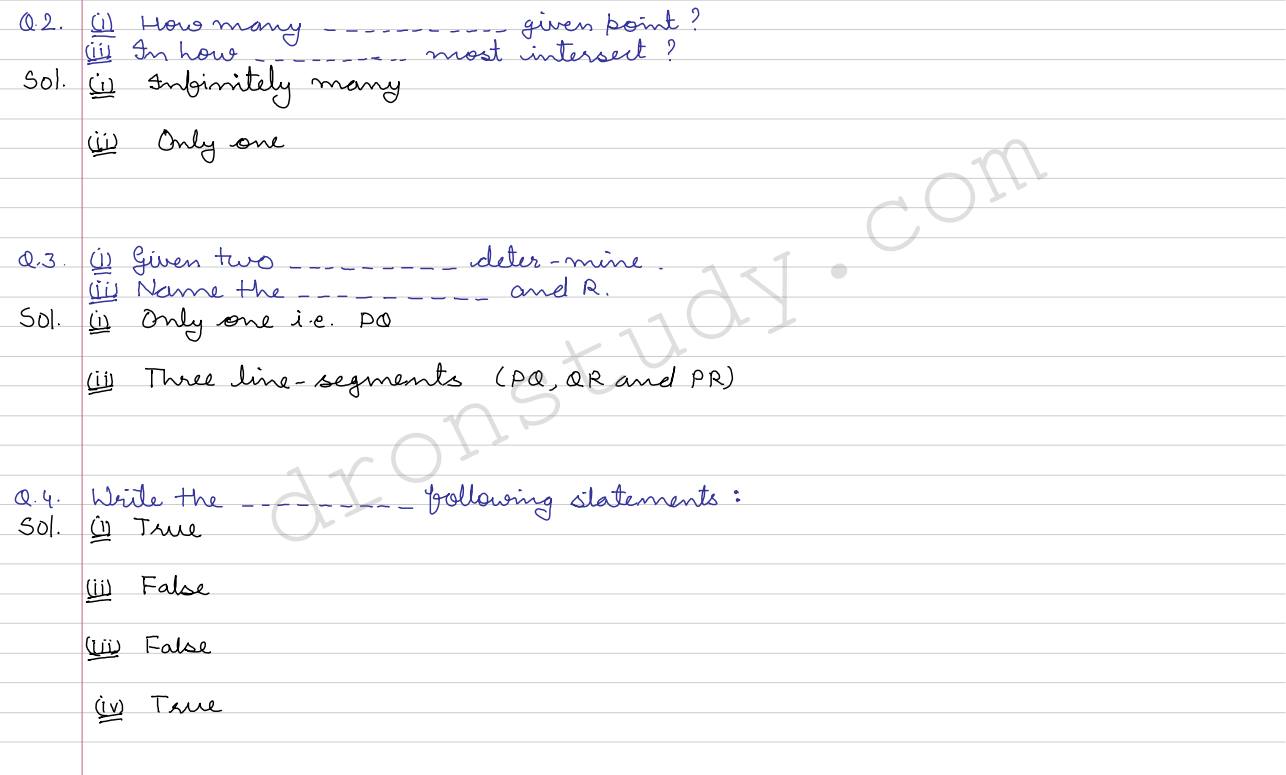 Q.2. (i) How many ----------- given point ?
(ii) In how --------- most intersect ?
Sol. (i) Infinitely many
(ii) Only one
Q.3. (i) Given two --------- deter-mine.
(ii) Name the ---------- and R.
Sol. (i) Only one i.e. PQ
(ii) Three line-segments (PQ, QR and PR)
Q.4. Write the --------- following statements :
Sol. (i) True
(ii) False
(iii) False
(iv) True
dronstudy.com